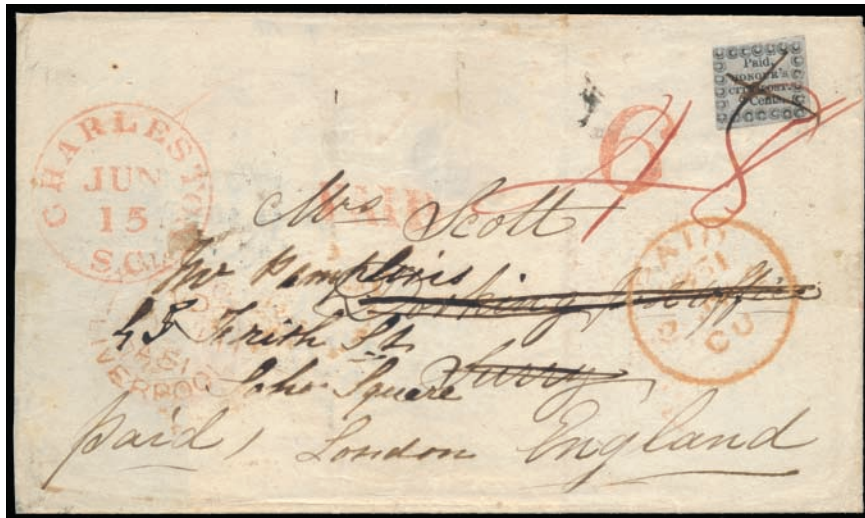 Paid,
HONOUR'S
CITY POST.
2 Cents.
CHARLESTON
JUN
15
S.C.
PAID
6
Mrs Scott
Dorking post office
45 Frith St
Surry
Soho Square
paid, London England
PAID
LIVERPOOL